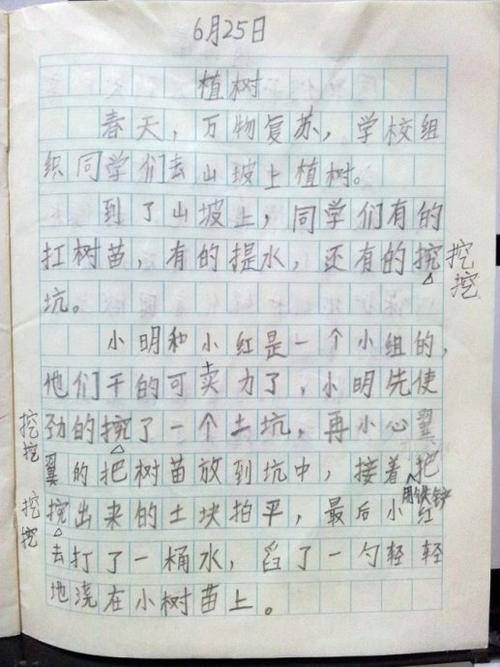 6月25日
植树
春天，万物复苏，学校组
织同学们去山坡上植树。
到了山坡上，同学们有的
扛树苗，有的提水，还有的挖 挖
挖
坑。
小明和小红是一个小组的，
他们干的可卖力了，小明先使
挖 劲的挖了一个土坑，再小心翼
挖
翼的把树苗放到坑中，接着把
用铁锹
挖 挖出来的土块拍平，最后小红
挖
去打了一桶水，舀了一勺轻轻
地浇在小树苗上。